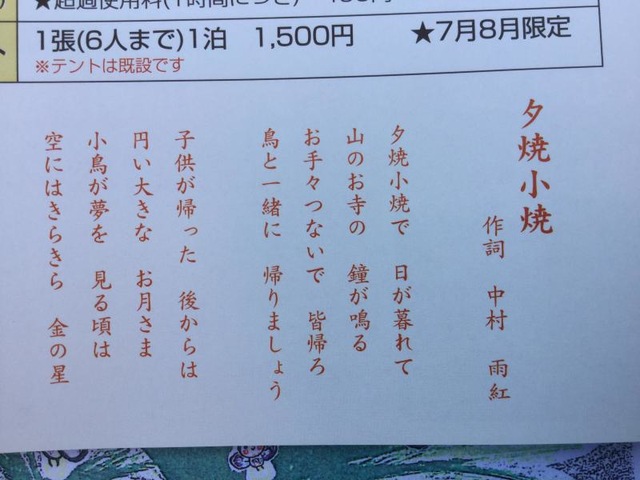 ★超過使用料(1時間につき)
1張(6人まで)1泊 1,500円 ★7月8月限定
※テントは既設です
夕焼小焼
作詞 中村 雨紅
夕焼小焼で 日が暮れて
山のお寺の 鐘が鳴る
お手々つないで 皆帰ろ
烏と一緒に 帰りましょう
子供が帰った 後からは
円い大きな お月さま
小鳥が夢を 見る頃は
空にはきらきら 金の星